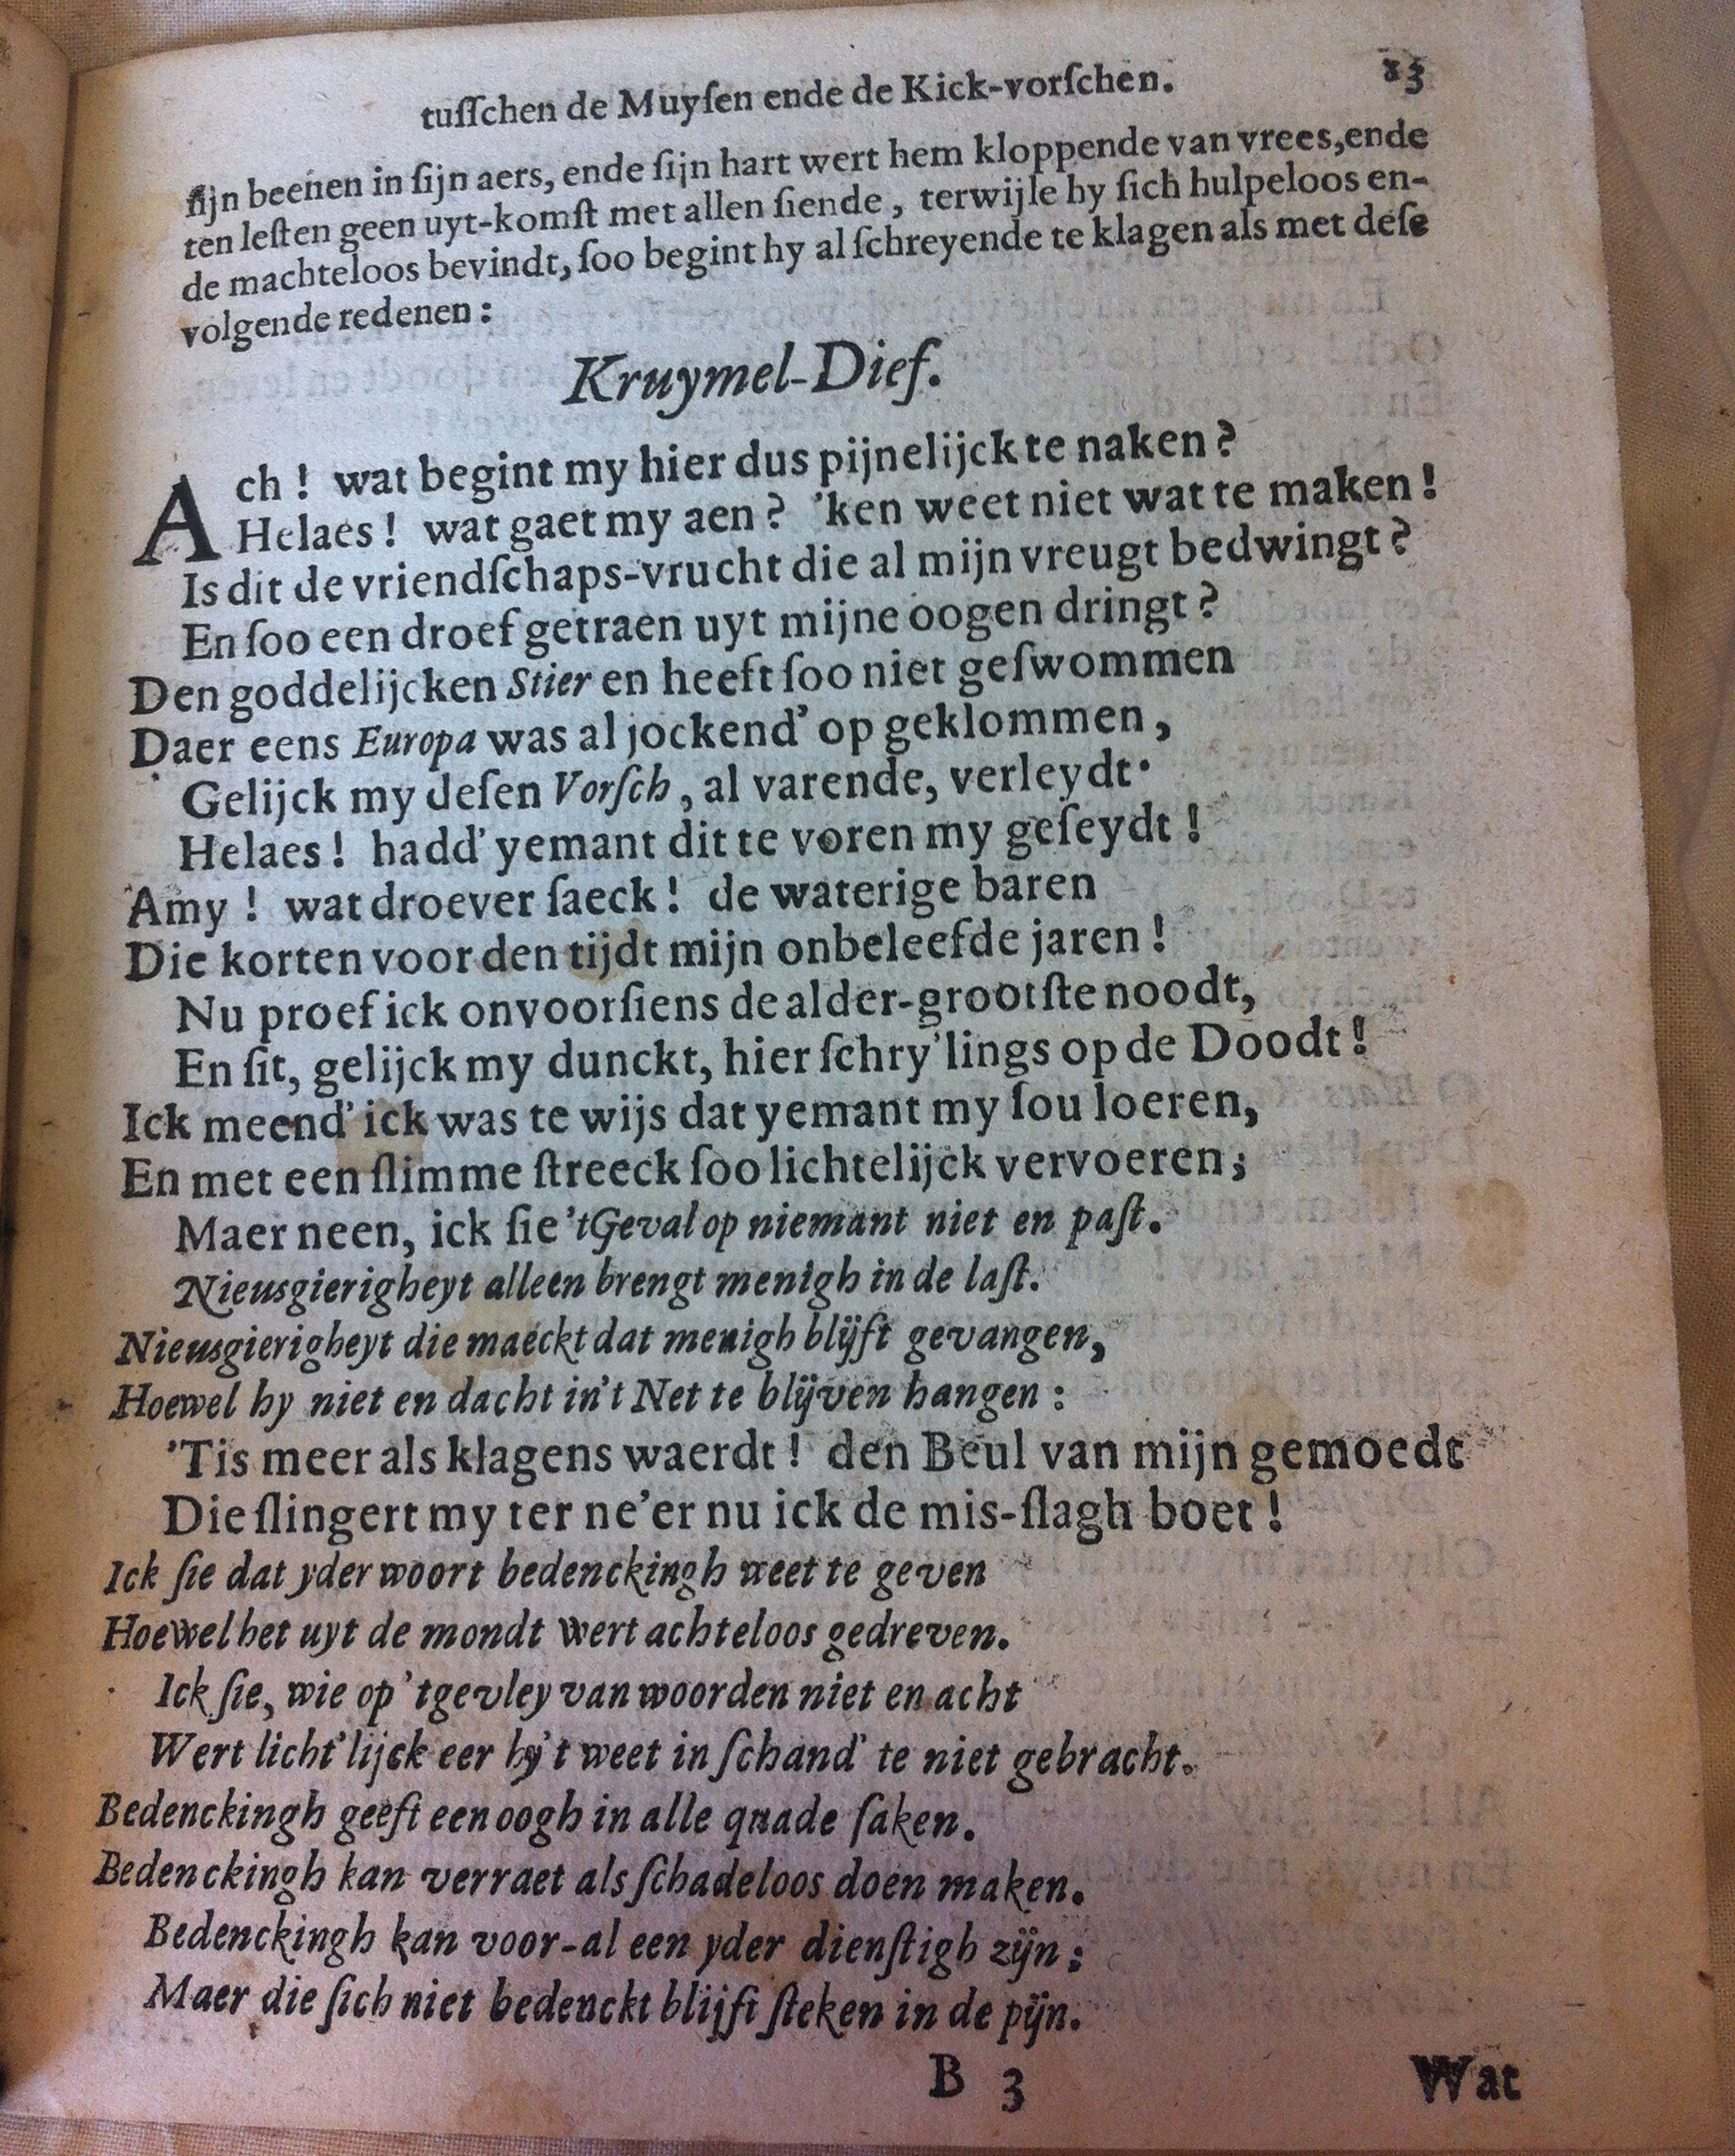 tuſſchen de Muyſen ende de Kick-vorſchen. 13
ſijn beenen in ſijn aers, ende ſijn hart wert hem kloppende van vrees, ende
ten leſten geen uyt-komſt met allen ſiende, terwijle hy ſich hulpeloos en-
de machteloos bevindt, ſoo begint hy al ſchreyende te klagen als met deſe
volgende redenen:
Kruymel-Dief.
Ach! wat begint my hier dus pijnelijck te naken?
Helaes! wat gaet my aen? 'ken weet niet wat te maken!
Is dit de vriendſchaps-vrucht die al mijn vreugt bedwingt?
En ſoo een droef getraen uyt mijne oogen dringt?
Den goddelijcken Stier en heeft ſoo niet geſwommen
Daer eens Europa was al jockend' op geklommen,
Gelijck my deſen Vorſch, al varende, verleydt·
Helaes! hadd' yemant dit te voren my geſeydt!
Amy! wat droever ſaeck! de waterige baren
Die korten voor den tijdt mijn onbeleefde jaren!
Nu proef ick onvoorſiens de alder-grootſte noodt,
En ſit, gelijck my dunckt, hier ſchry'lings op de Doodt!
Ick meend' ick was te wijs dat yemant my ſou loeren,
En met een ſlimme ſtreeck ſoo lichtelijck vervoeren;
Maer neen, ick ſie 'tGeval op niemant niet en paſt.
Nieusgierigheyt alleen brengt menigh in de laſt.
Nieusgierigheyt die maeckt dat menigh blijft gevangen,
Hoewel hy niet en dacht in't Net te blijven hangen:
'Tis meer als klagens waerdt! den Beul van mijn gemoedt
Die ſlingert my ter ne'er nu ick de mis-ſlagh boet!
Ick ſie dat yder woort bedenckingh weet te geven
Hoewel het uyt de mondt wert achteloos gedreven.
Ick ſie, wie op 'tgevley van woorden niet en acht
Wert licht'lijck eer hy't weet in ſchand' te niet gebracht.
Bedenckingh geeft een oogh in alle quade ſaken.
Bedenckingh kan verraet als ſchadeloos doen maken.
Bedenckingh kan voor-al een yder dienſtigh zijn;
Maer die ſich niet bedenckt blijft ſteken in de pijn.
B 3 Wat